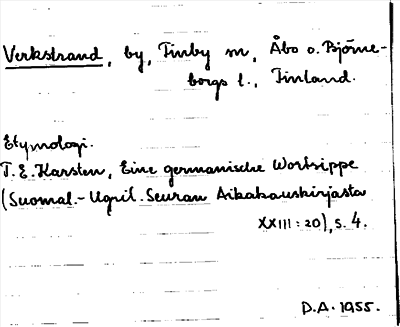 Verkstrand, by, Finby sn, Åbo o. Björne-
borgs l., Finland.
Etymologi.
T. E. Karsten, Eine germanische Wortsippe
(Suomal.-Ugril. Seuran Aikakauskirjasta
XXIII:20), s. 4.
D.A. 1955.